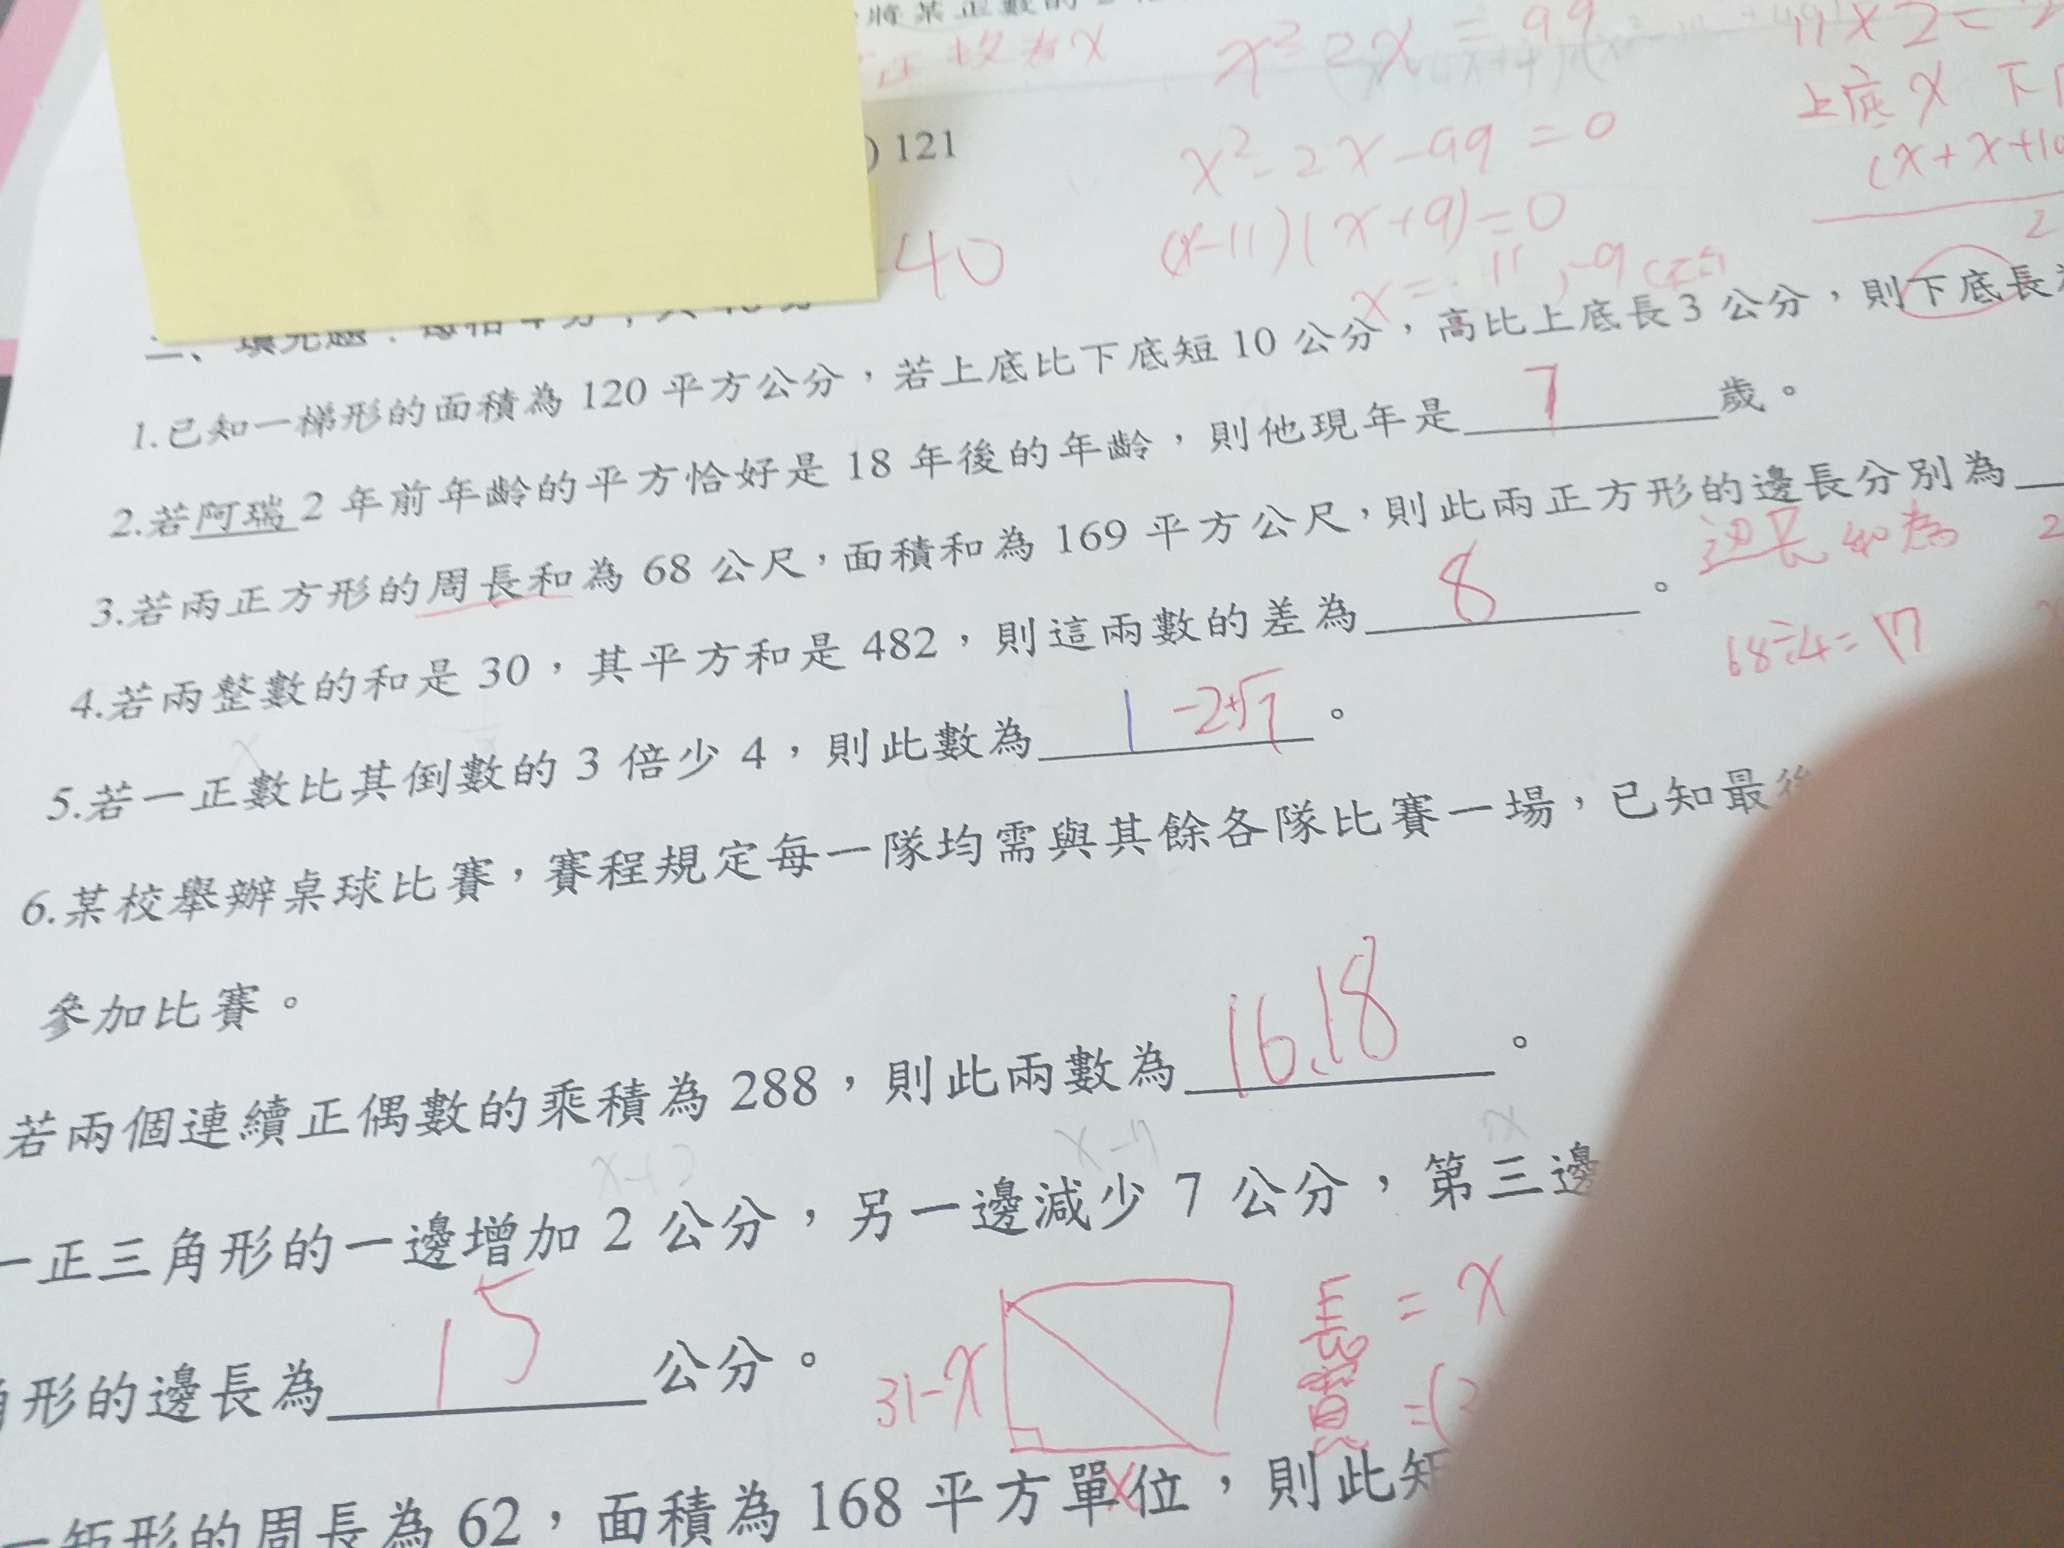 x² - 2x = 99
11×2=2
上底 x 下
) 121
x² - 2x - 99 = 0
(x + x + 10
2
(x-11)(x+9)=0
40
x = 11, -9
1.已知一梯形的面積為 120 平方公分，若上底比下底短 10 公分，高比上底長 3 公分，則下底長
2.若阿瑞 2 年前年齡的平方恰好是 18 年後的年齡，則他現年是 7 歲。
3.若兩正方形的周長和為 68 公尺，面積和為 169 平方公尺，則此兩正方形的邊長分別為
边長和為
4.若兩整數的和是 30，其平方和是 482，則這兩數的差為 8 。
68÷4=17
5.若一正數比其倒數的 3 倍少 4，則此數為 -2+√7 。
6.某校舉辦桌球比賽，賽程規定每一隊均需與其餘各隊比賽一場，已知最後
參加比賽。
若兩個連續正偶數的乘積為 288，則此兩數為 16.18 。
x+2
x-7
一正三角形的一邊增加 2 公分，另一邊減少 7 公分，第三邊
角形的邊長為 15 公分。
31-x
長 = x
寬 =(
x
一矩形的周長為 62，面積為 168 平方單位，則此矩